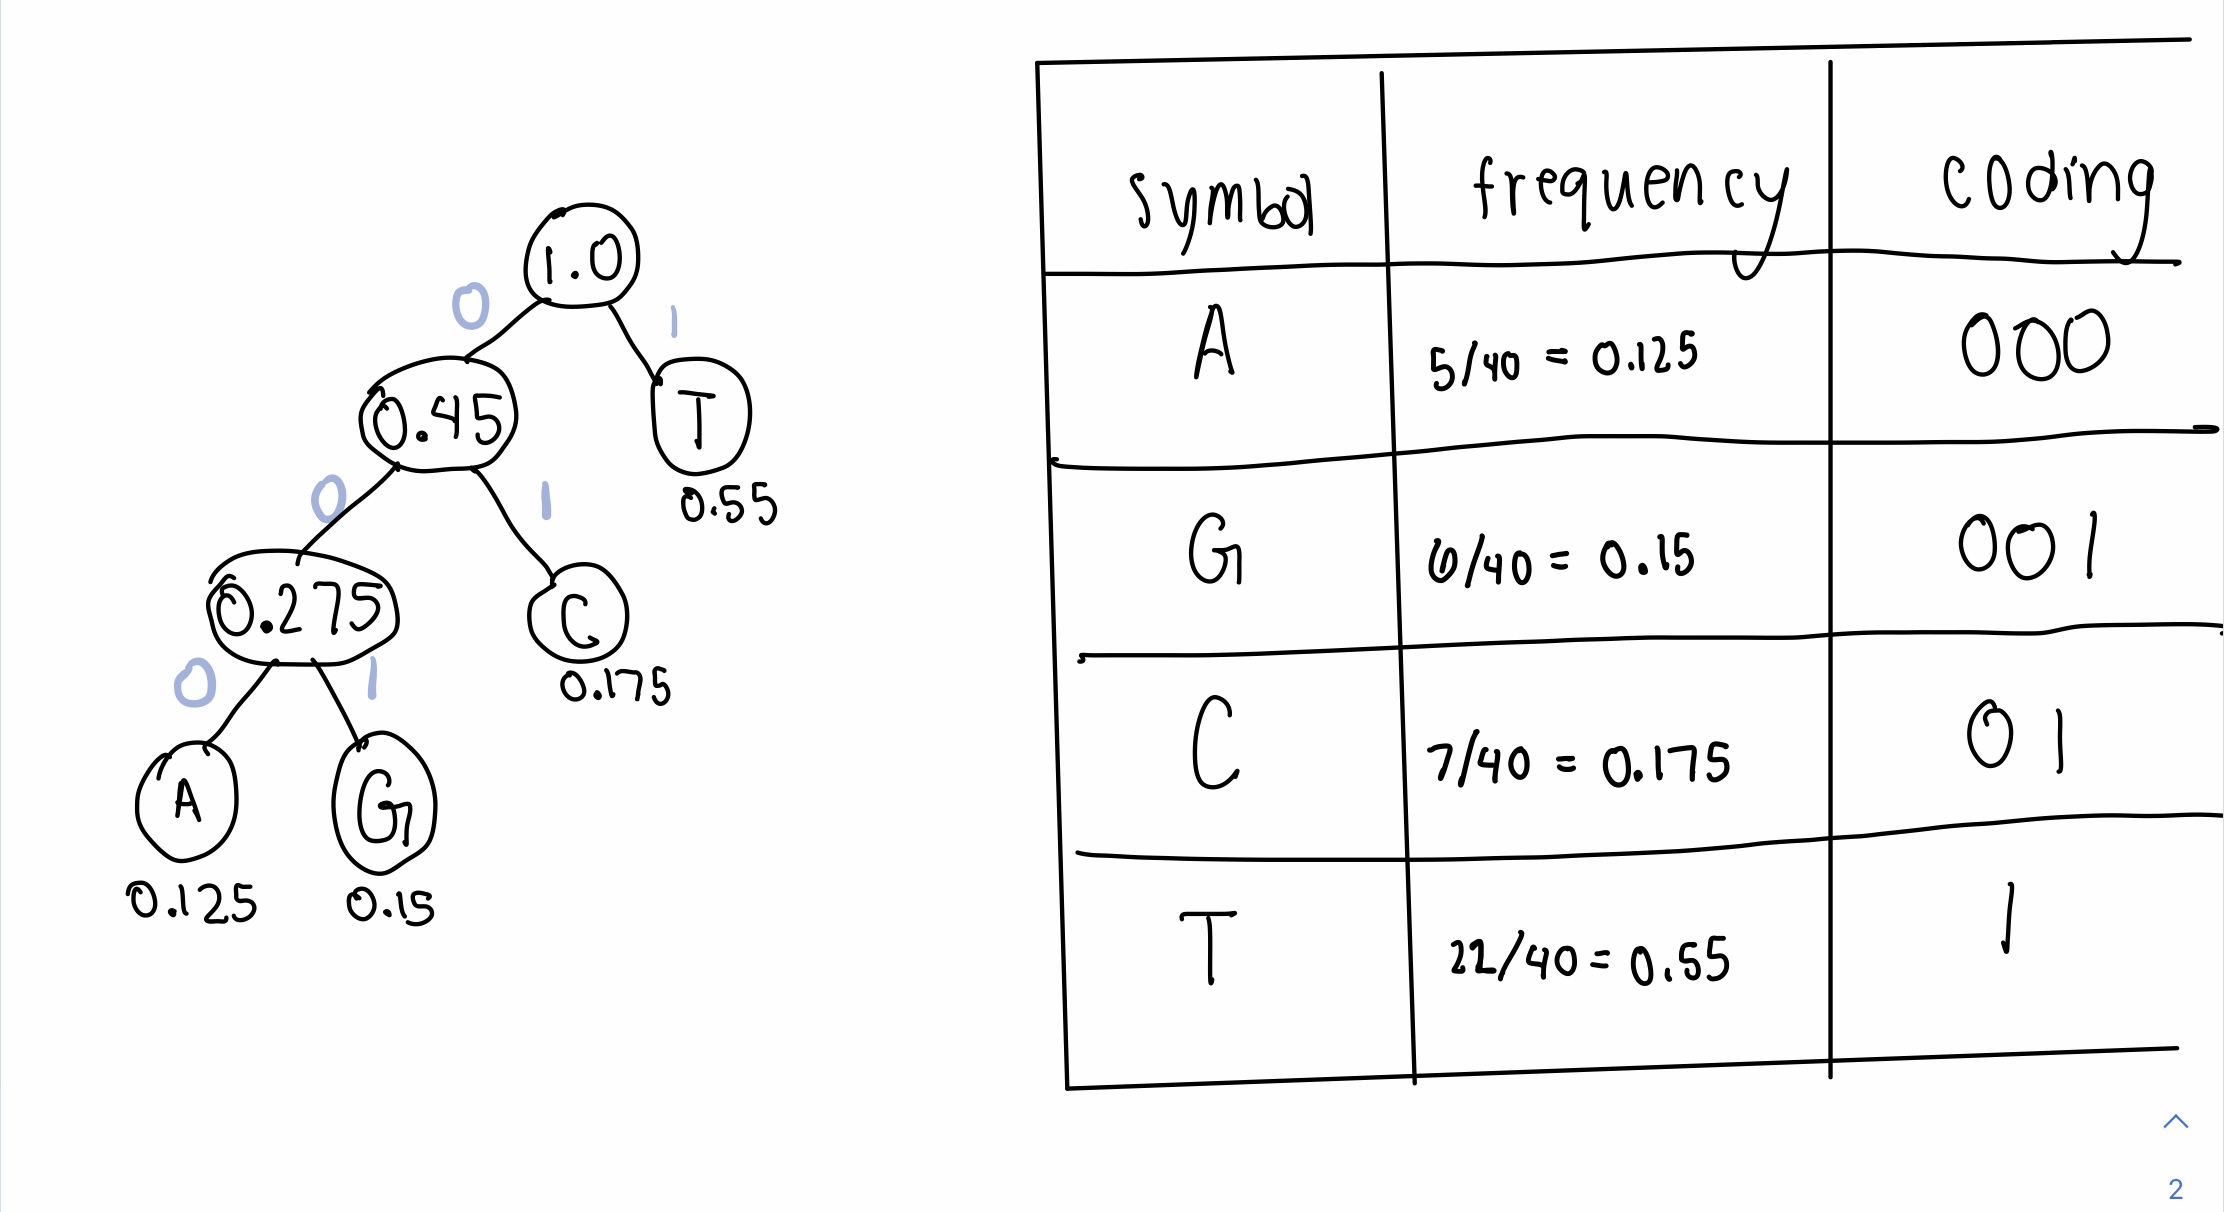 1.0
0 1
0.45 T
0.55
0 1
0.275 C
0.175
0 1
A G
0.125 0.15
symbol frequency coding
A 5/40 = 0.125 000
G 6/40 = 0.15 001
C 7/40 = 0.175 01
T 22/40 = 0.55 1
2